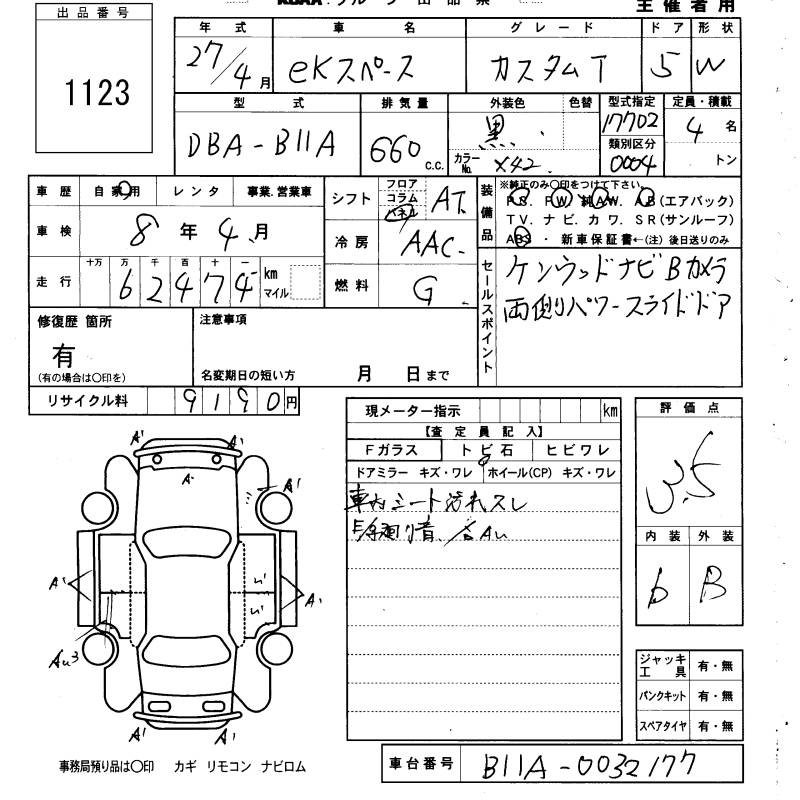 出品番号
1123
主催者用
年式 車名 グレード ドア 形状
27/4月 eKスペース カスタムT 5 W
型式 排気量 外装色 色替 型式指定 定員・積載
DBA-B11A 660c.c. 黒 カラーNo. X42 17702 4名
類別区分
0004 トン
車歴 自家用 レンタ 事業.営業車
シフト フロア コラム パネル AT
装備品 ※純正のみ〇印をつけて下さい
P.S. P.W. 純A.W. A.B(エアバック)
TV. ナビ. カワ. SR(サンルーフ)
ABS ・ 新車保証書←(注) 後日送りのみ
車検 8年4月
冷房 AAC
走行 十万 万 千 百 十 一 km マイル
62474
燃料 G
セールスポイント
ケンウッドナビ Bカメラ
両側パワースライドドア
修復歴 箇所
有
(有の場合は〇印を)
注意事項
名変期日の短い方 月 日まで
リサイクル料 9190円
現メーター指示 km
【査定員記入】
Fガラス トビ石 ヒビワレ
ドアミラー キズ・ワレ ホイール(CP) キズ・ワレ
車内シート汚れスレ
AU
評価点
3.5
内装 外装
b B
A' A'
A'
A'
A' A'
AU3
A' A'
ジャッキ工具 有・無
パンクキット 有・無
スペアタイヤ 有・無
事務局預り品は〇印 カギ リモコン ナビロム
車台番号 B11A-0032177